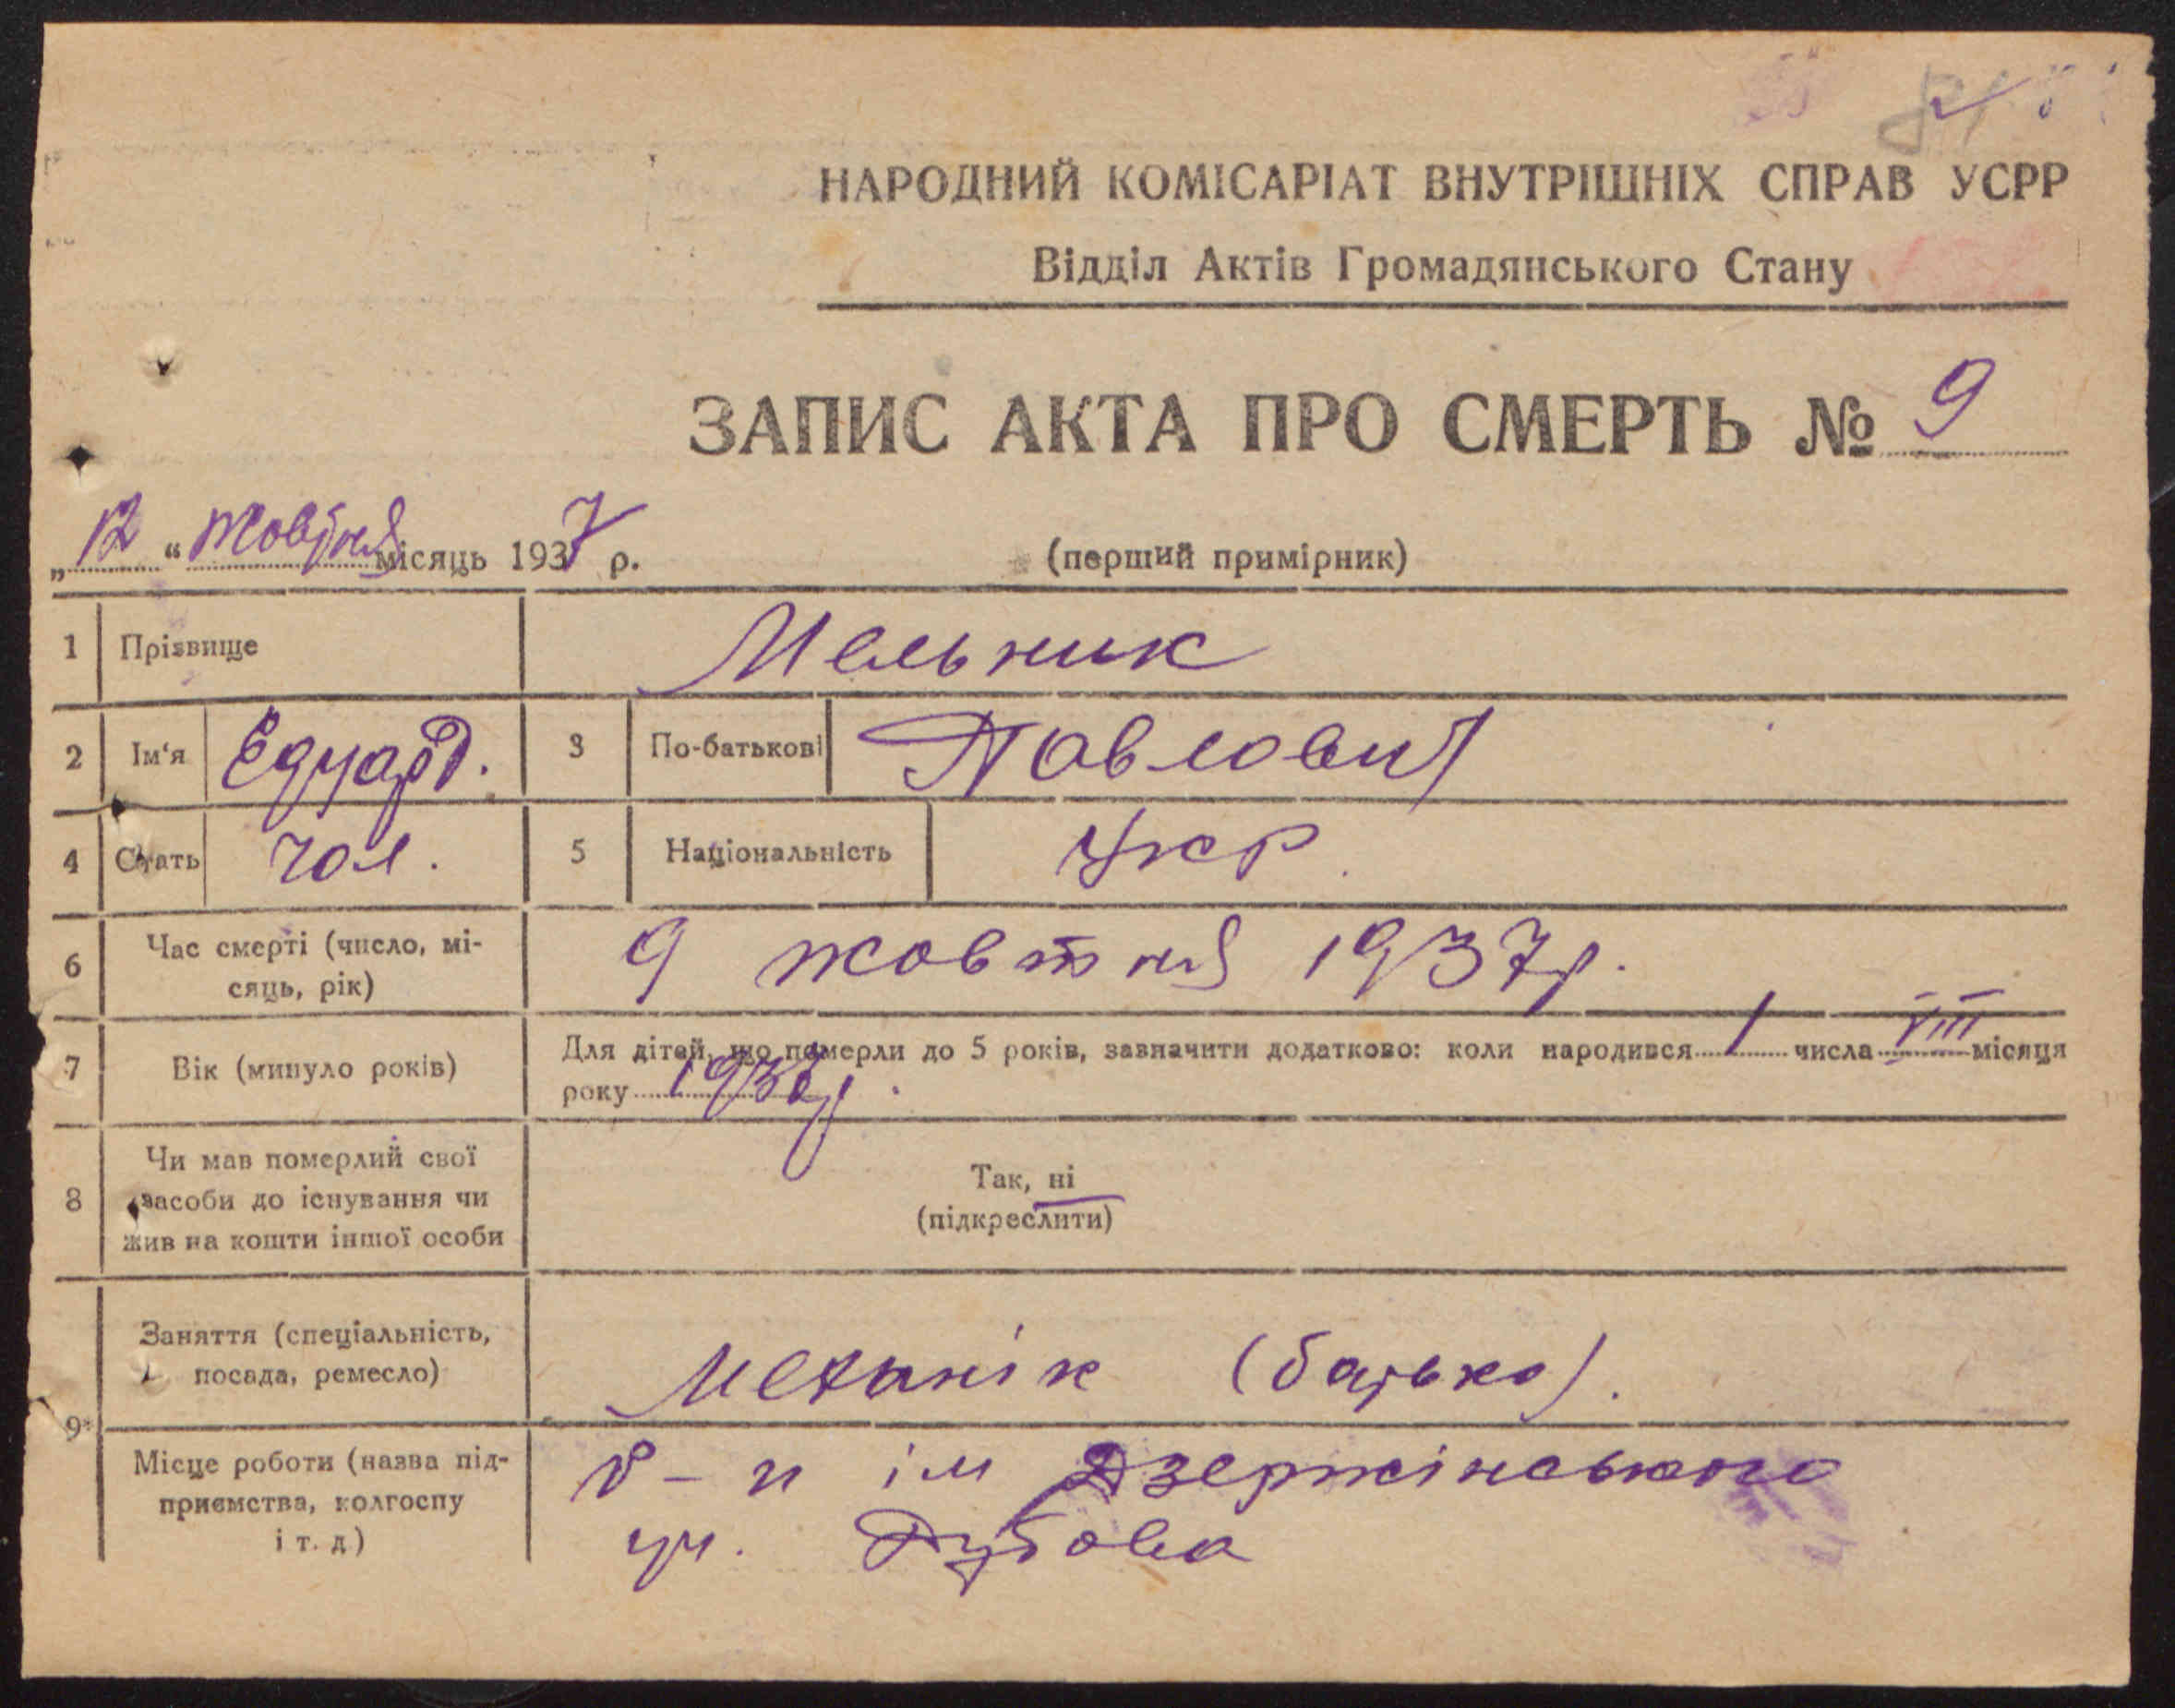 НАРОДНИЙ КОМІСАРІАТ ВНУТРІШНІХ СПРАВ УСРР
Відділ Актів Громадянського Стану
ЗАПИС АКТА ПРО СМЕРТЬ № 9
„12“ жовтня місяць 1937 р.
(перший примірник)
1 Прізвище Мельник
2 Ім'я Едуард. 3 По-батькові Павлович
4 Стать чол. 5 Національність Укр.
6 Час смерті (число, мі-
сяць, рік) 9 жовтня 1937р.
7 Вік (минуло років) Для дітей, що померли до 5 років, зазначити додатково: коли народився 1 числа VIII місяця
року
8 Чи мав померлий свої
засоби до існування чи
жив на кошти іншої особи
Так, ні
(підкреслити)
9 Заняття (спеціальність,
посада, ремесло) Механік (батько).
Місце роботи (назва під-
приємства, колгоспу
і т. д.)
р-п ім Дзержінського
уч. Дубова